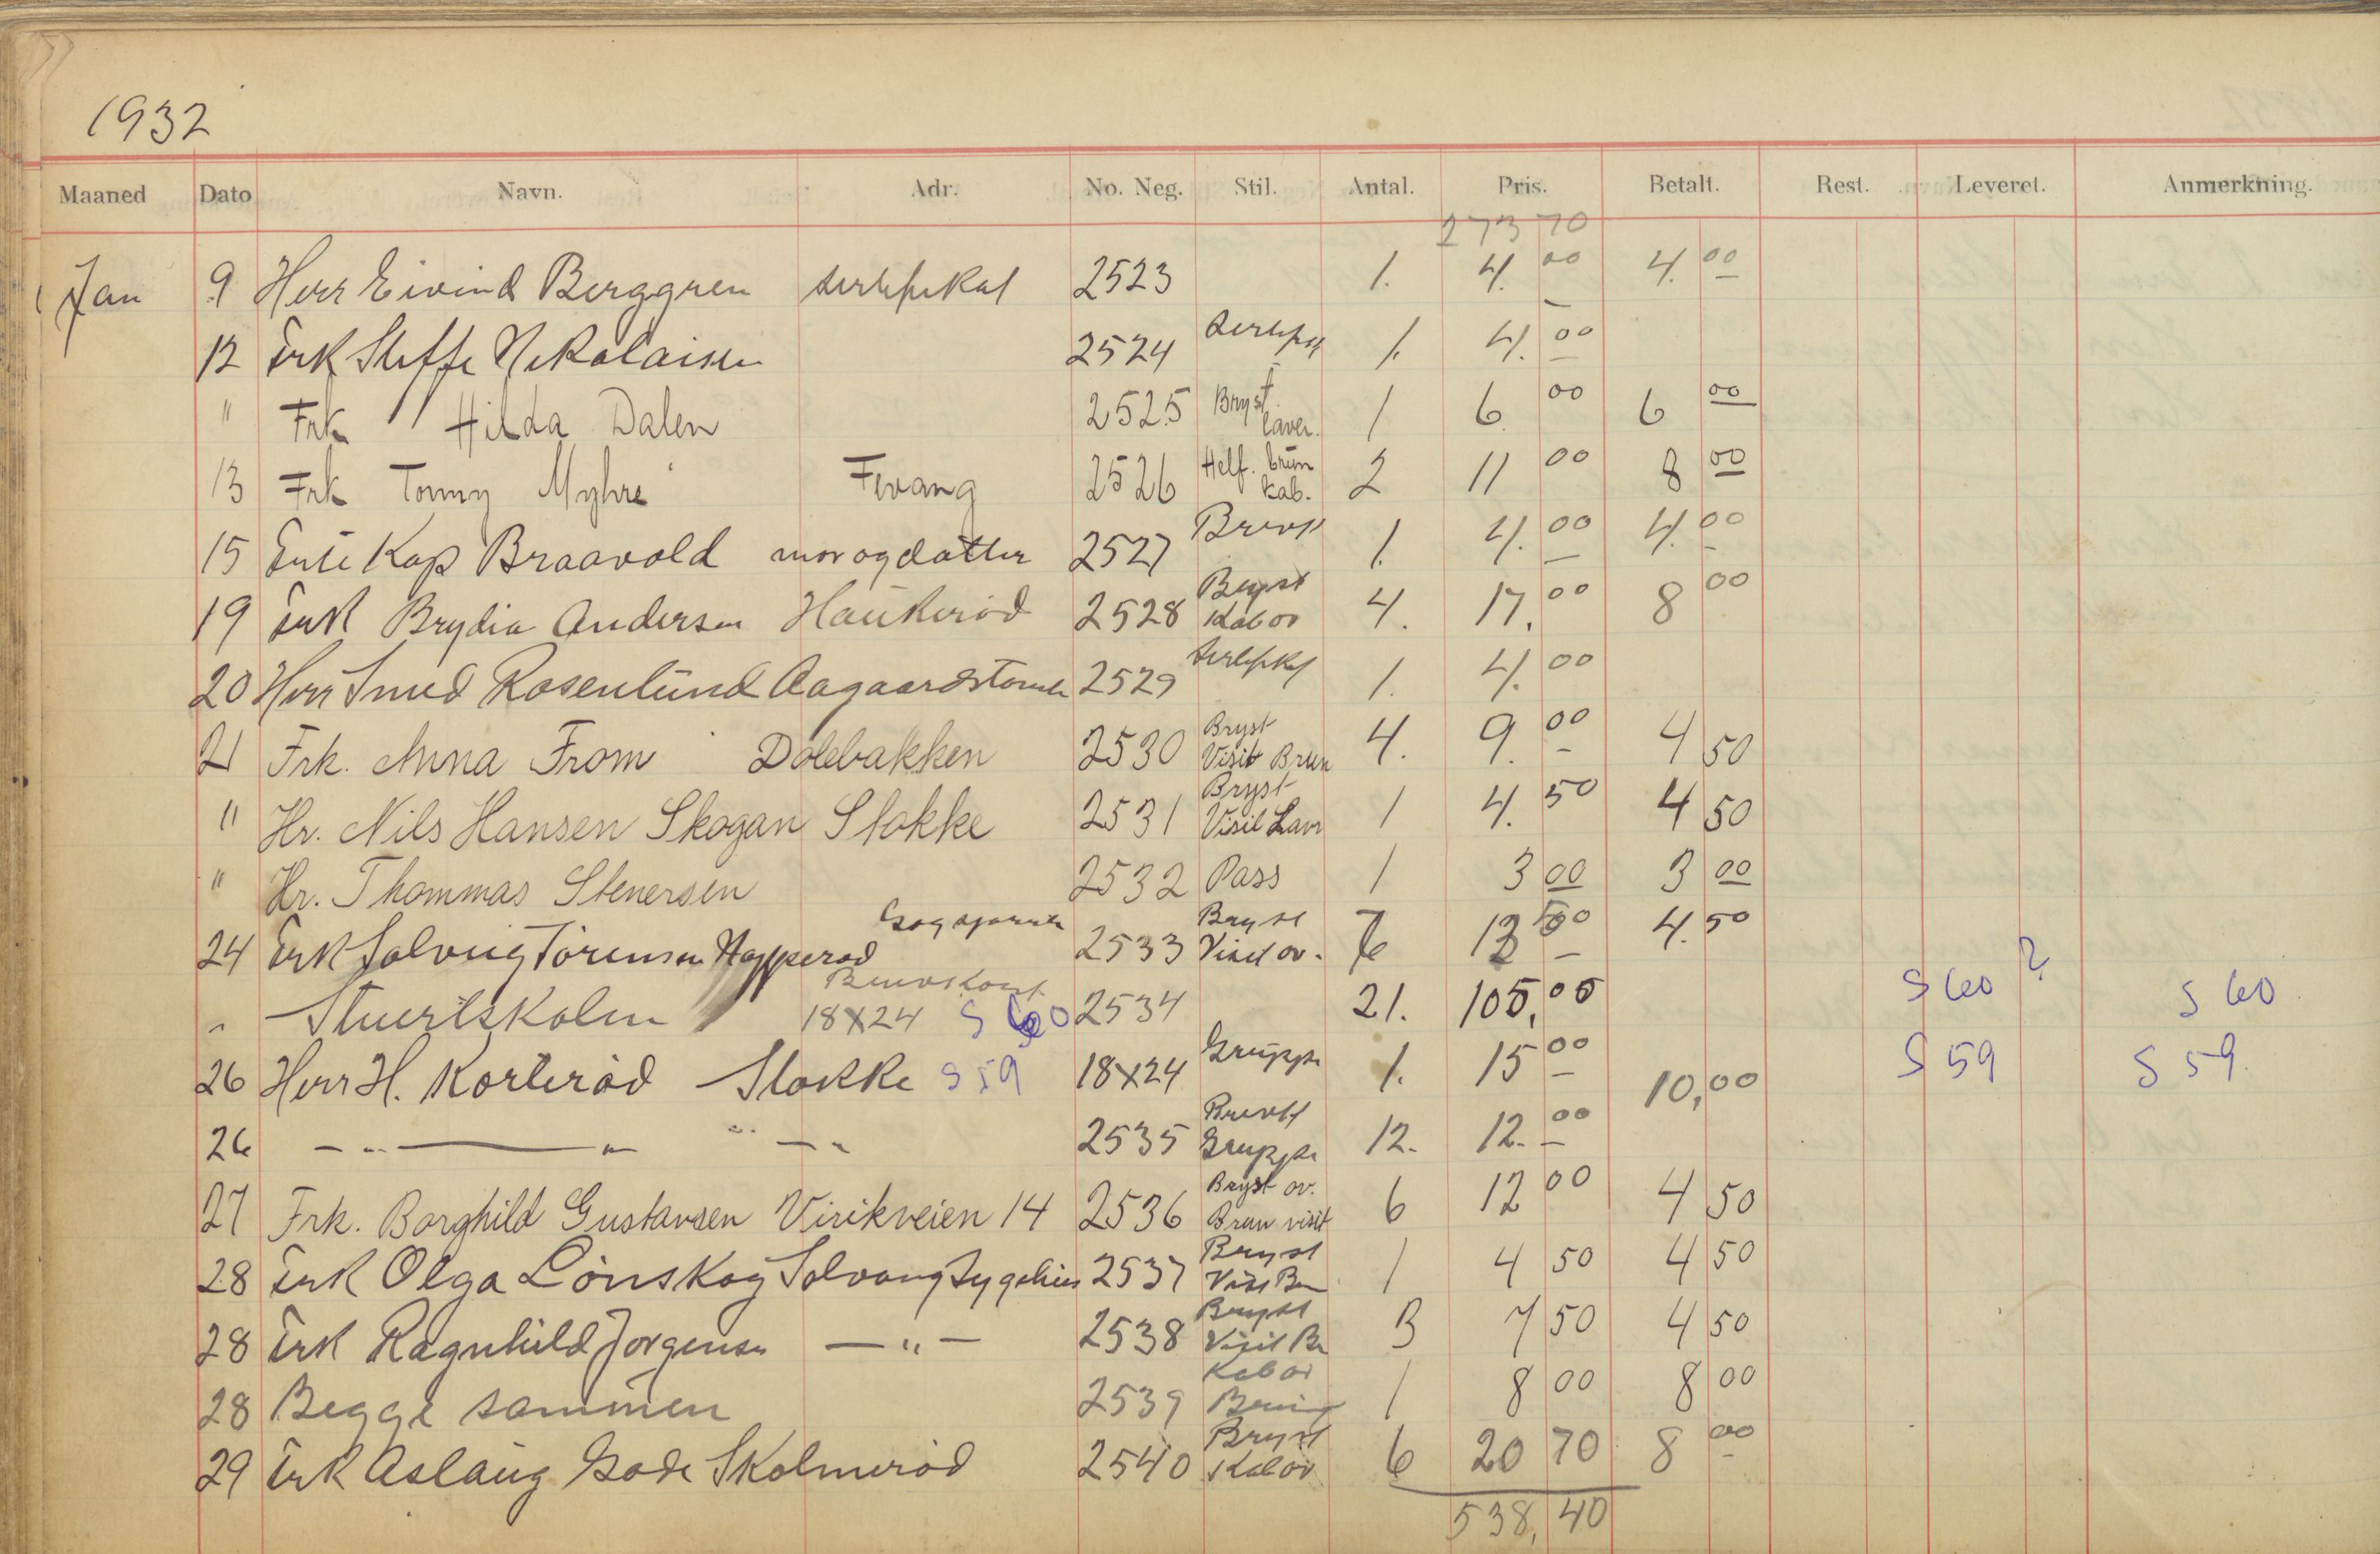 1932
Maaned Dato Navn. Adr. No. Neg. Stil. Antal. Pris. Betalt. Rest. Leveret. Anmerkning.
273 70
Jan 9 Herr Eivind Berggren sertifikat 2523 1. 4. 00 4. 00
12 Frk Steffe Nikolaisen 2524 sertifikat 1. 4. 00
" Frk Hilda Dalen 2525 Bryst laver. 1 6 00 6 00
13 Frk Tommy Myhre Fevang 2526 Helf. brun kab. 2 11 00 8 00
15 Kap Braavold mor og datter 2527 Brevk 1. 4. 00 4. 00
19 Frk Brydia Andersen Haukerød 2528 Bryst Kab ov 4. 17. 00 8 00
20 Herr Smed Rosenlund Aagaardstomta 2529 sertifikat 1. 4. 00
21 Frk. Anna From Dølebakken 2530 Bryst Visit Brun 4. 9. 00 4 50
" Hr. Nils Hansen Skogan Stokke 2531 Bryst Visit Lavr 1 4. 50 4 50
" Hr. Thommas Stenersen 2532 Pass 1 3 00 3 00
24 Frk Solveig Tørensen 2533 Bryst Visit ov. 4. 50
" Stuertskolen Brevskort 18X24 S 60 2534 21. 105,00 S 60 ? S 60
26 Herr H. Korterød Stokke S 59 18X24 Gruppe 1. 15 00 10,00 S 59 S 59
26 — " — " — " — 2535 Brevk Gruppe 12. 12. 00
27 Frk. Borghild Gustavsen Virikveien 14 2536 Bryst ov. Brun visit 6 12 00 4 50
28 Frk Olga Lønskog Solvang Sygehus 2537 Bryst Visit Br 1 4 50 4 50
28 Frk Ragnhild Jørgensen — " — 2538 Bryst Visit Br 3 7 50 4 50
28 Begge sammen 2539 Kab ov 1 8 00 8 00
29 Frk Aslaug Gode Skolmerød 2540 Bryst Kab ov 6 20 70 8 00
538,40